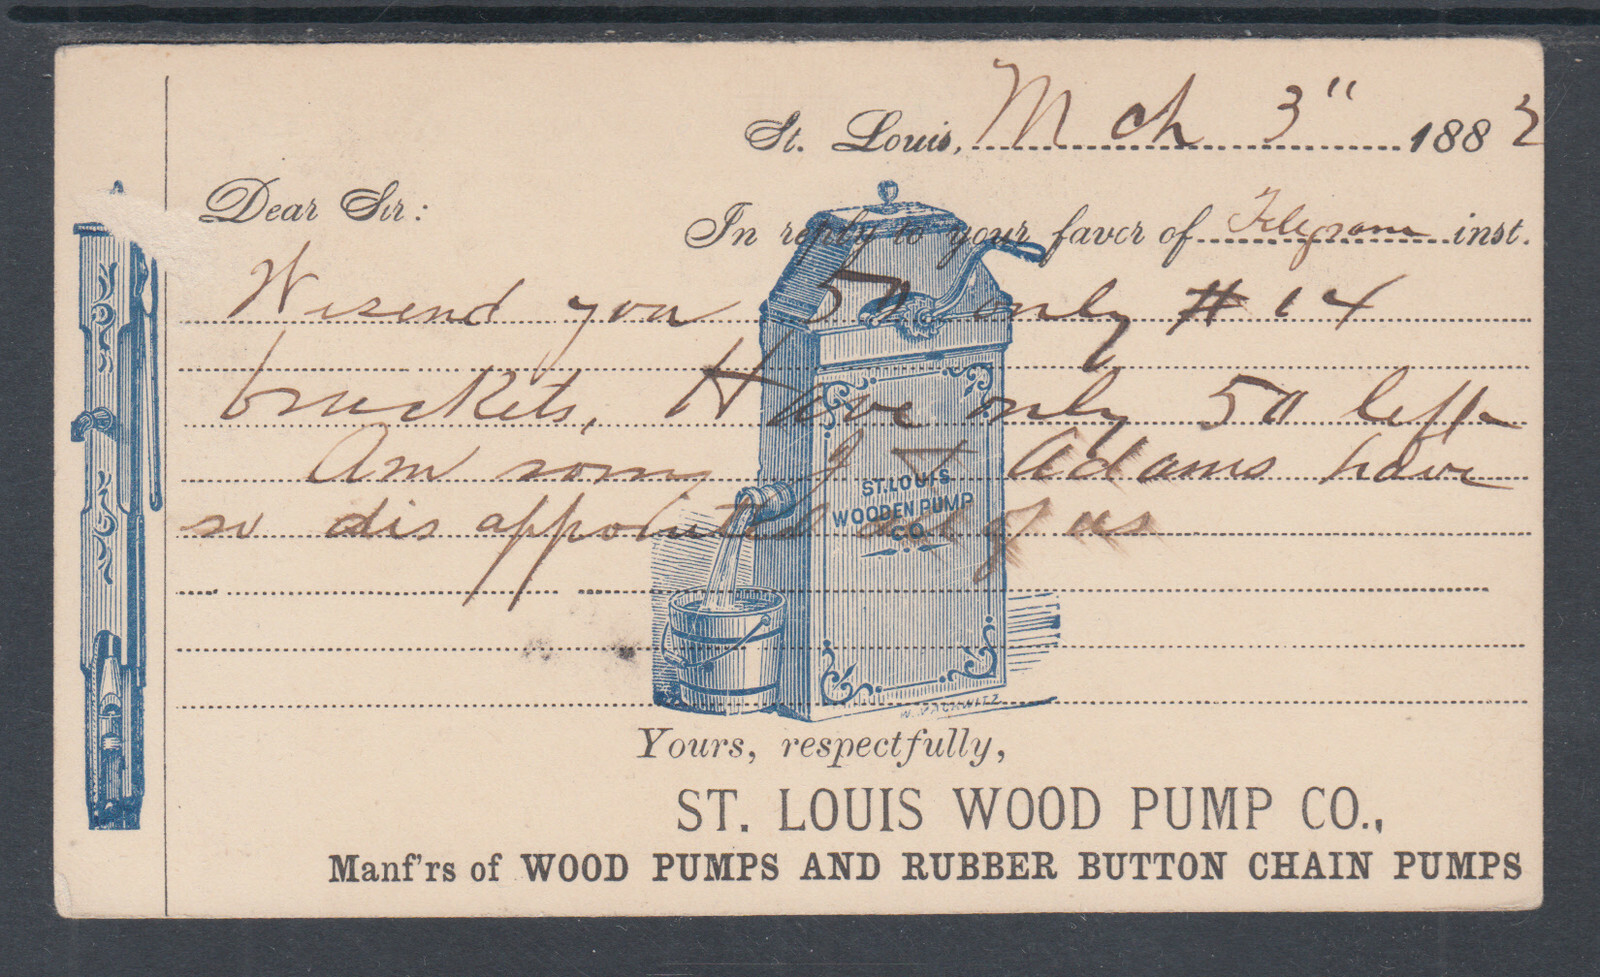 St. Louis, Mch 3" 1883
Dear Sir:
In reply to your favor of Telegram inst.
We send you 50 only # 14
brackets, Have only 50 left
Am sorry J & Adams have
so dis appointed of us
ST. LOUIS
WOODEN PUMP
CO.
W. PACHWITZ
Yours, respectfully,
ST. LOUIS WOOD PUMP CO.,
Manf'rs of WOOD PUMPS AND RUBBER BUTTON CHAIN PUMPS